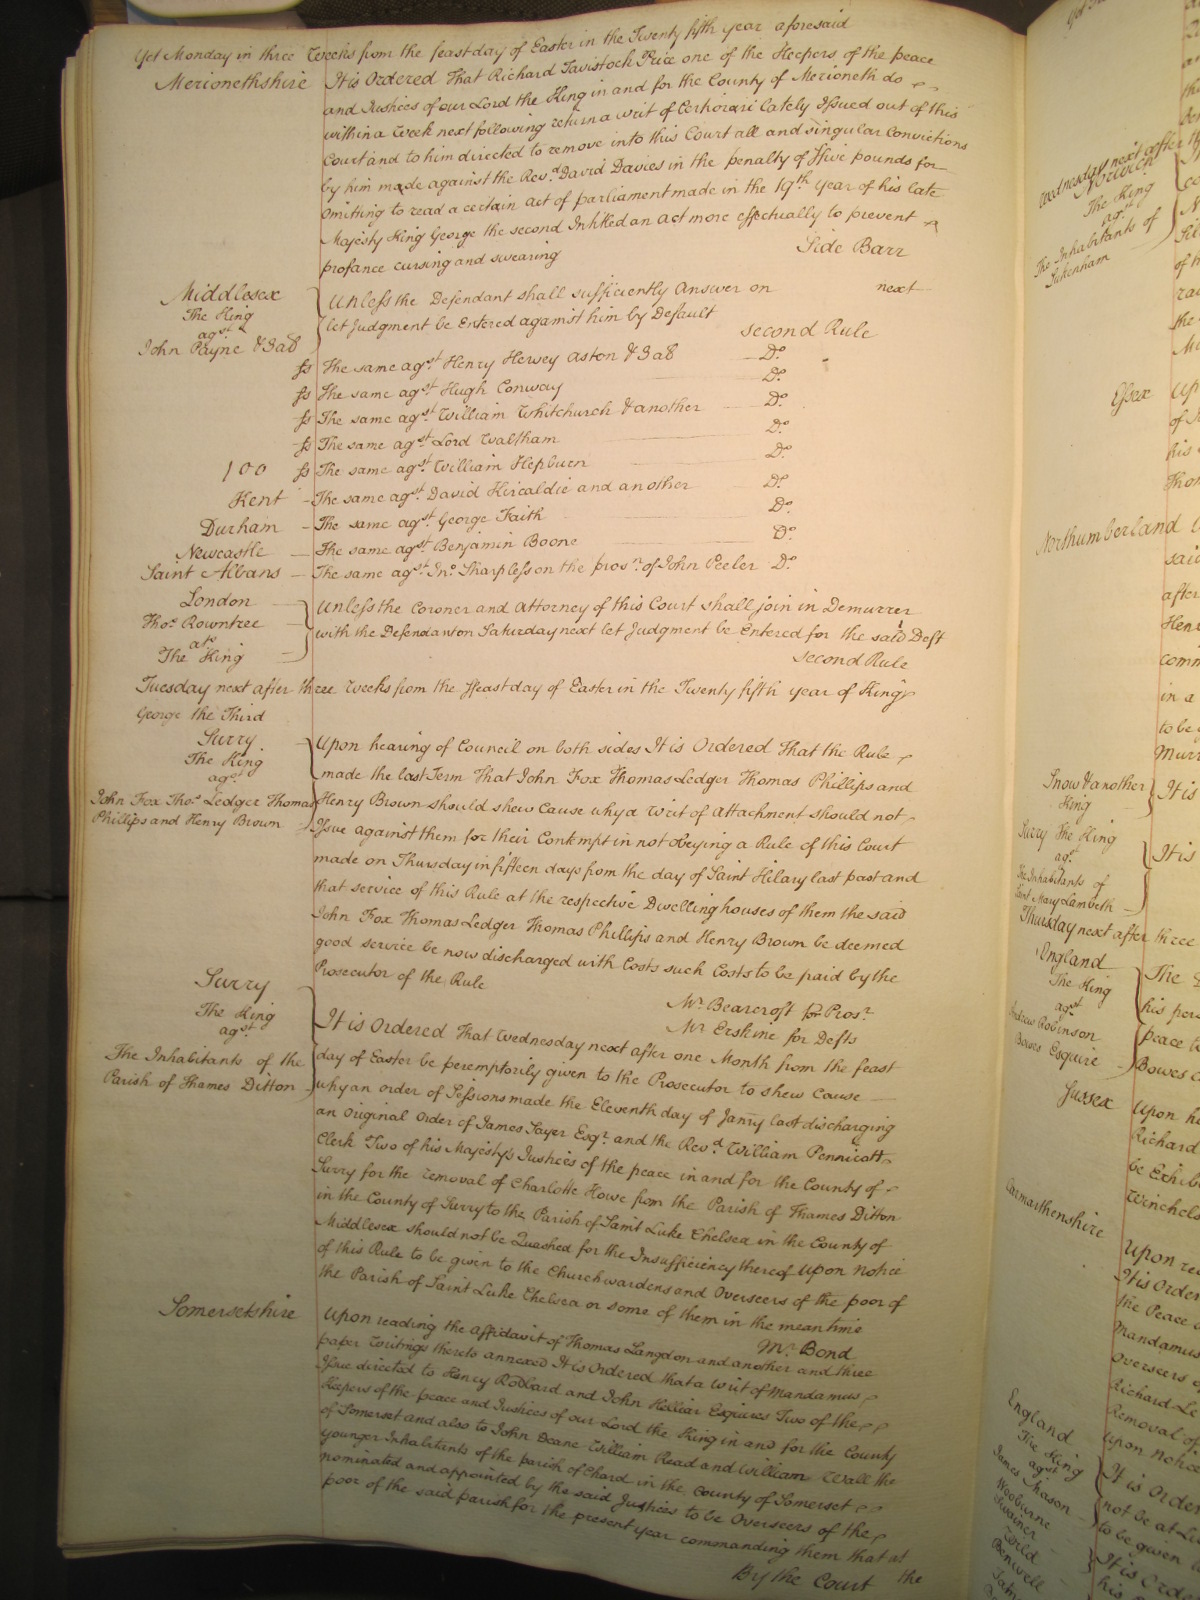 Yet Monday in three Weeks from the feast day of Easter in the Twenty fifth year aforesaid
Merionethshire
It is Ordered That Richard Tavistock Price one of the Keepers of the peace
and Justices of our Lord the King in and for the County of Merioneth do
within a Week next following return a writ of Certiorari lately Issued out of this
Court and to him directed to remove into this Court all and singular Convictions
by him made against the Rev.d David Davies in the penalty of ffive pounds for
omitting to read a certain act of parliament made in the 19th year of his late
Majesty King George the second Intitled an act more effectually to prevent
profance cursing and swearing
Side Barr
Middlesex
The King
agst
John Payne & 3 als
Unless the Defendant shall sufficiently Answer on next
let Judgment be Entered against him by Default
second Rule
ss The same agst Henry Hervey Aston & 3 als Do
ss The same agst Hugh Conway Do
ss The same agst William Whitchurch & another Do
ss The same agst Lord Waltham Do
100 ss The same agst William Hepburn Do
Kent - The same agst David Kircaldie and another Do
Durham - The same agst George Faith Do
Newcastle - The same agst Benjamin Boone Do
Saint Albans - The same agst Jno Sharpless on the prosn of John Peeler Do
London
Thos Rowntree
ats
The King
Unless the Coroner and Attorney of this Court shall join in Demurrer
with the Defendant on Saturday next let Judgment be Entered for the said Deft
second Rule
Tuesday next after three Weeks from the ffeast day of Easter in the Twenty fifth year of King
George the Third
Surry
The King
agst
John Fox Thos Ledger Thomas
Phillips and Henry Brown
Upon hearing of Council on both sides It is Ordered That the Rule
made the last Term That John Fox Thomas Ledger Thomas Phillips and
Henry Brown should shew Cause why a Writ of Attachment should not
Issue against them for their Contempt in not obeying a Rule of this Court
made on Thursday in fifteen days from the day of Saint Hilary last past and
that service of this Rule at the respective Dwelling houses of them the said
John Fox Thomas Ledger Thomas Phillips and Henry Brown be deemed
good service be now discharged with Costs such Costs to be paid by the
Prosecutor of the Rule
Mr Bearcroft for Prosr
Mr Erskine for Defts
Surry
The King
agst
The Inhabitants of the
Parish of Thames Ditton
It is Ordered That Wednesday next after one Month from the feast
day of Easter be peremptorily given to the Prosecutor to shew Cause
why an order of Sessions made the Eleventh day of Janry last discharging
an Original Order of James Sayer Esqr and the Revd William Pennicott
Clerk Two of his Majestys Justices of the peace in and for the County of
Surry for the removal of Charlotte Howe from the Parish of Thames Ditton
in the County of Surry to the Parish of Saint Luke Chelsea in the County of
Middlesex should not be Quashed for the Insufficiency thereof Upon Notice
of this Rule to be given to the Churchwardens and Overseers of the poor of
the Parish of Saint Luke Chelsea or some of them in the mean time
Mr Bond
Somersetshire
Upon reading the affidavit of Thomas Langdon and another and three
paper Writings thereto annexed It is Ordered that a Writ of Mandamus
Issue directed to Henry Rodbard and John Helliar Esquires Two of the
Keepers of the peace and Justices of our Lord the King in and for the County
of Somerset and also to John Deane William Read and William Wall the
younger Inhabitants of the parish of Chard in the County of Somerset
nominated and appointed by the said Justices to be Overseers of the
poor of the said parish for the present year commanding them that at
By the Court the
Wednesday next after
Norwich
The King
agst
The Inhabitants of
Essex
Northumberland
Snow & another
King
It is
Surry The King
agst
The Inhabitants of
Saint Mary Lambeth
It is
Thursday next after three
England
The King
agst
Andrew Robinson
Bowes Esquire
his
peace
Bowes
Sussex
Upon
Richard
be Exhib
Carmarthenshire
Upon
It is Order
the Peace
Mandamus
Overseers of
Richard
removal of
upon notice
England
The King
agst
James Mason
Wooburne
It is Order
not be at
to be given
It is Orde
his